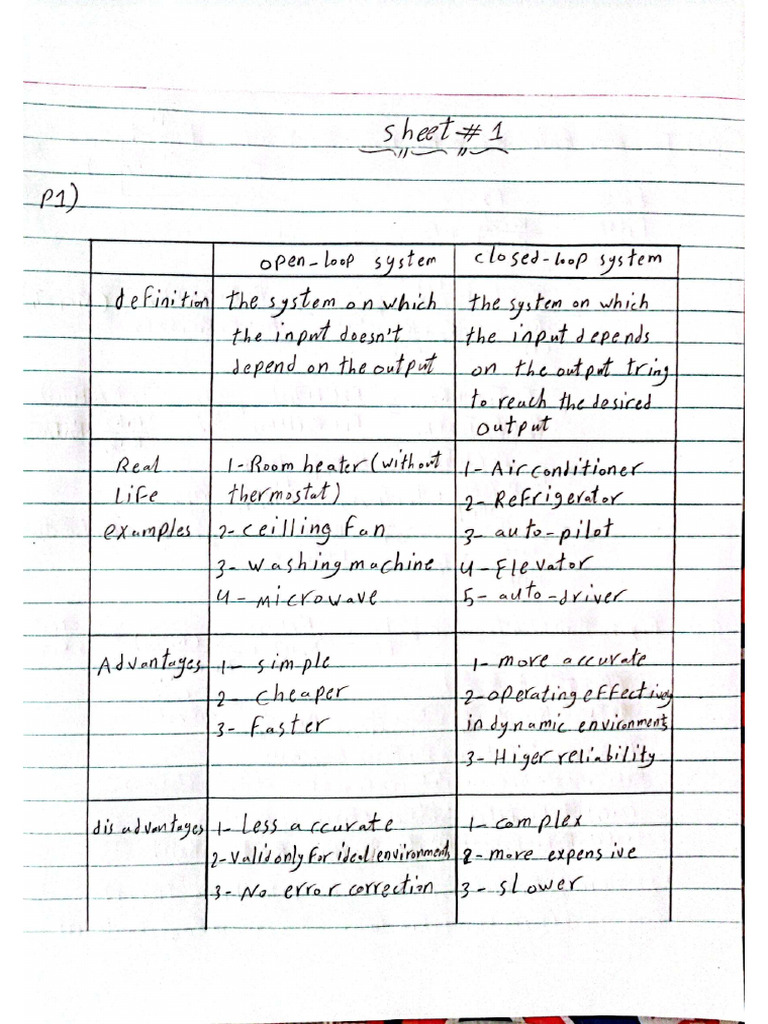 sheet # 1
P1)
open-loop system closed-loop system
definition the system on which the system on which
the input doesn't the input depends
depend on the output on the output tring
to reach the desired
output
Real 1- Room heater (without 1- Air conditioner
Life thermostat) 2- Refrigerator
examples 2- ceilling fan 3- auto-pilot
3- washing machine 4- Elevator
4- microwave 5- auto-driver
Advantages 1- simple 1- more accurate
2- cheaper 2- operating effectively
3- faster in dynamic environments
3- Higer reliability
disadvantages 1- Less accurate 1- complex
2- valid only for ideal environments 2- more expensive
3- No error correction 3- slower